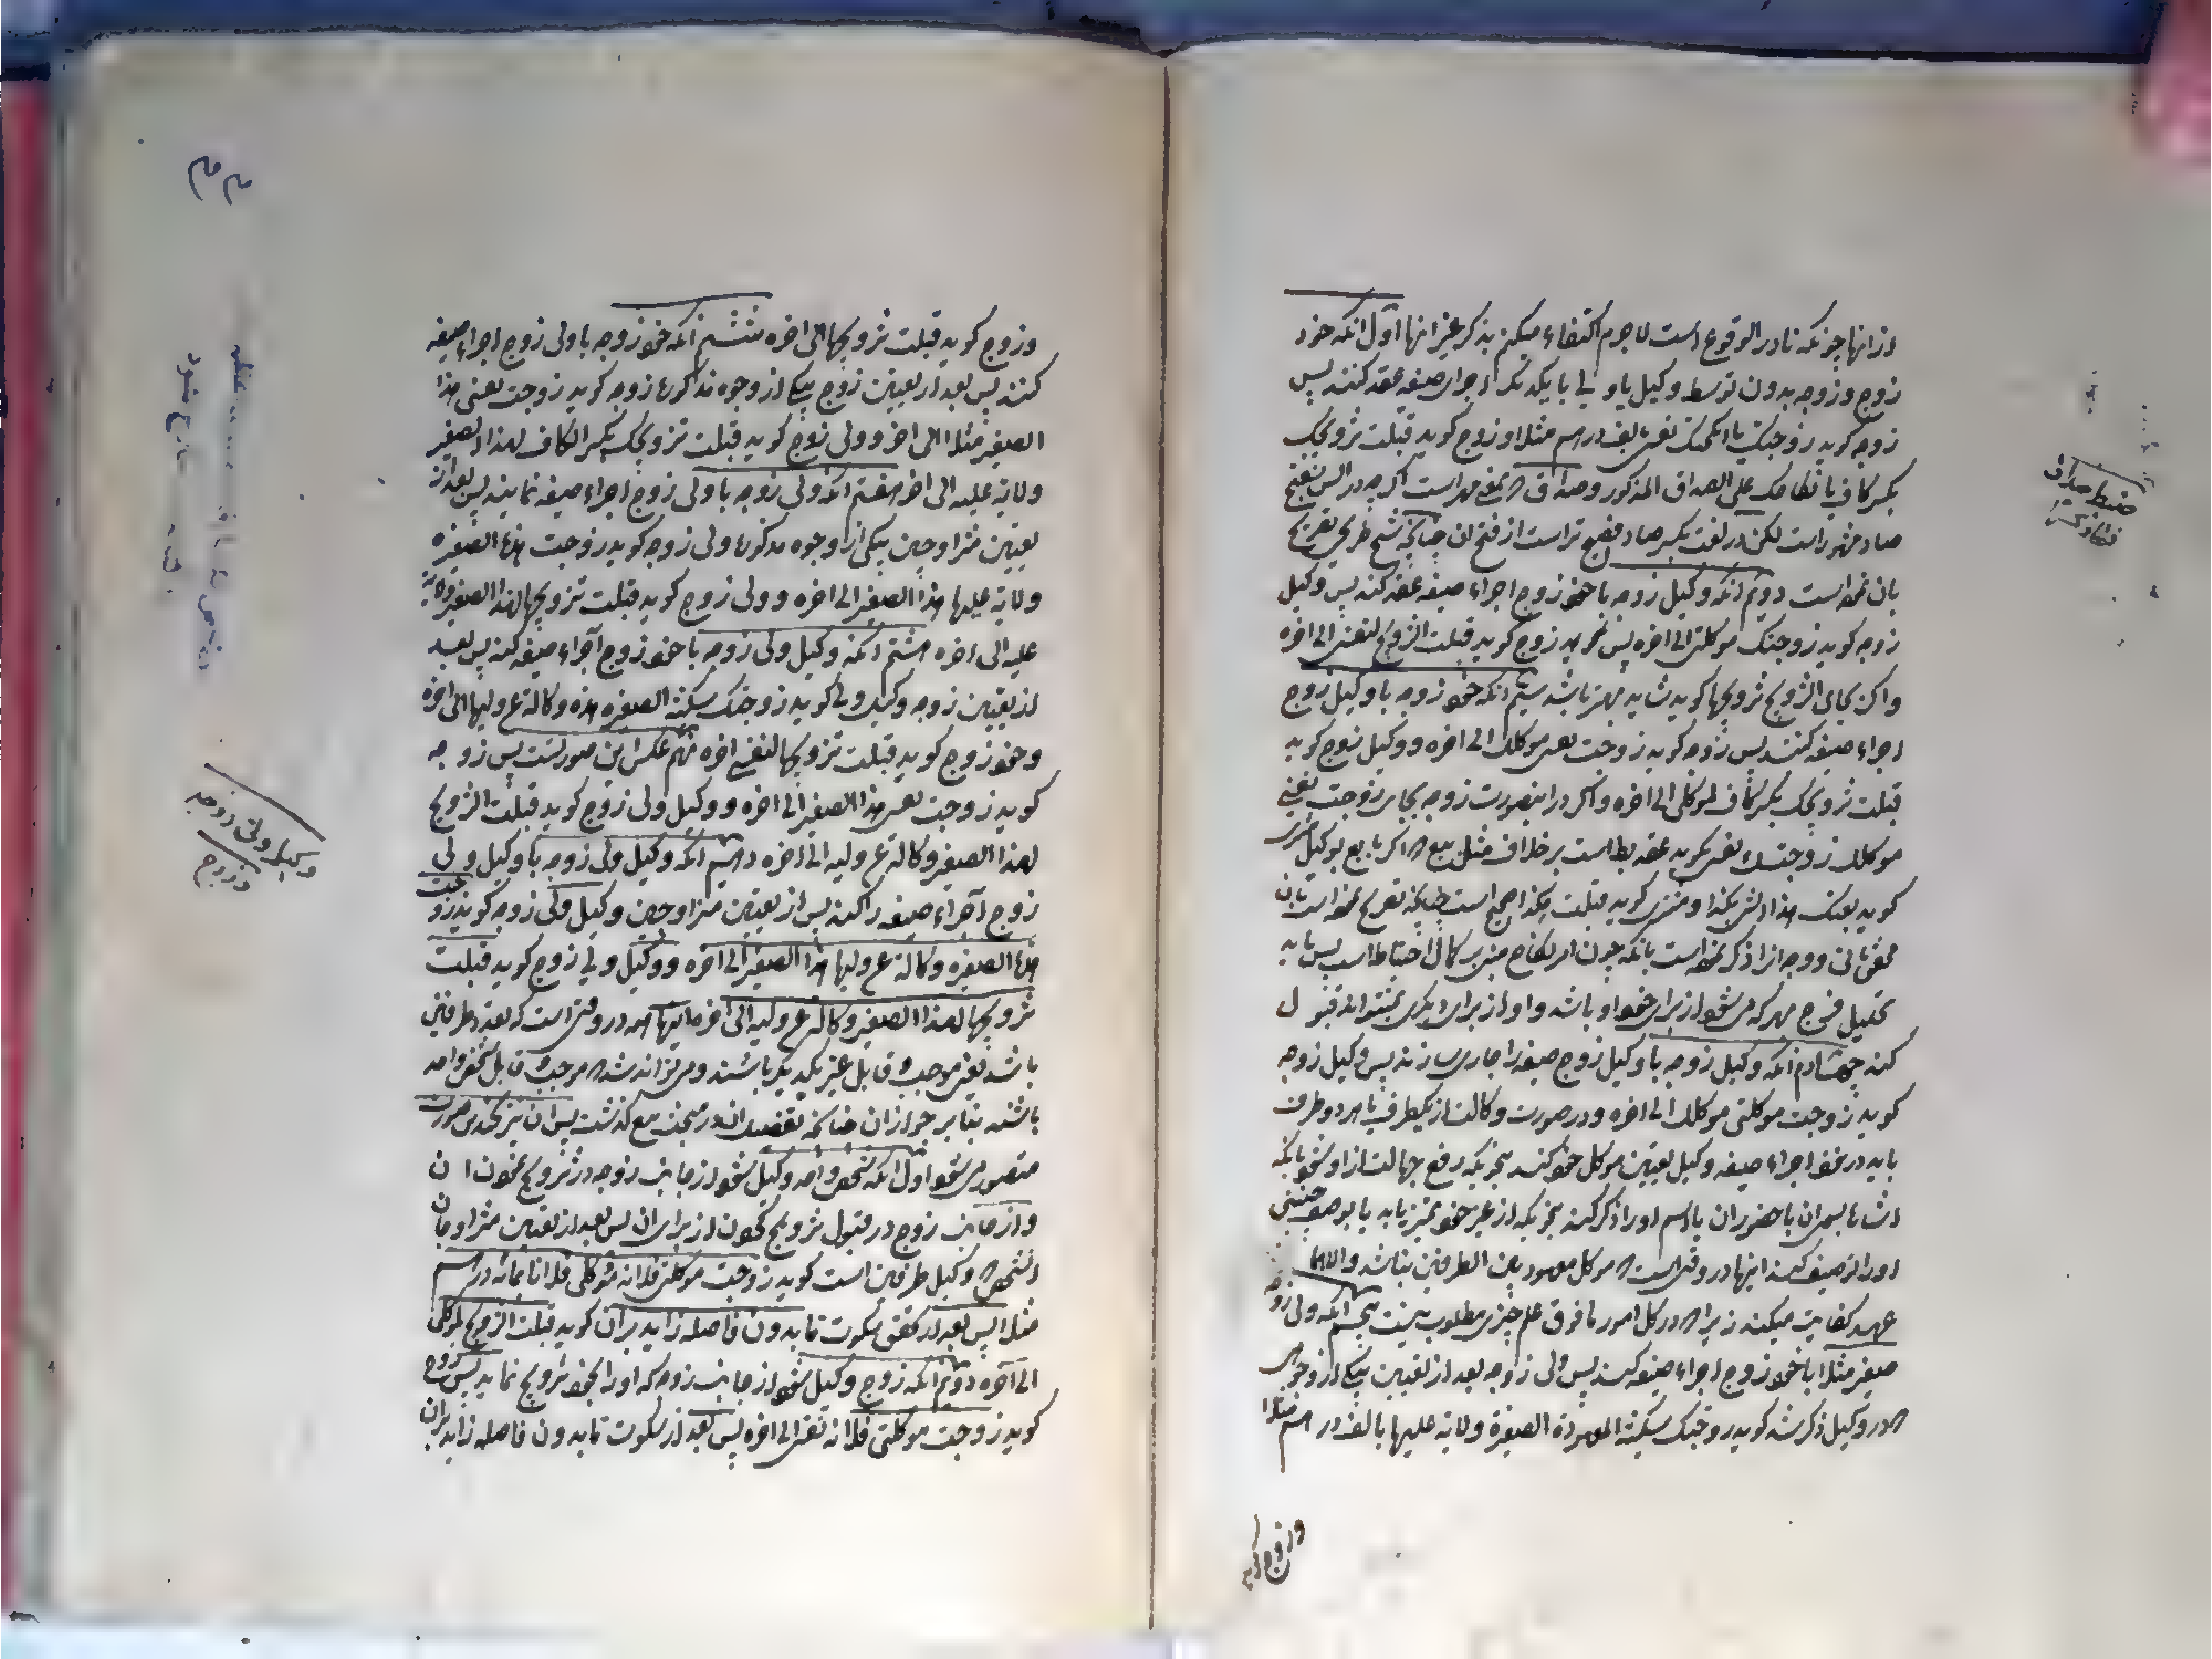 از انها چونکه نادر الوقوع است لاجرم اکتفاء میکنم بذکر غیر انها اول انکه خود
زوج و زوجه بدون توسط وکیل یا ولی با یکدیکر اجرای صیغه عقد کنند پس
زوجه کوید زوجتک یا انکحتک نفسی بالف درهم مثلا و زوج کوید قبلت تزویجک
بکسر کاف یا نکاحک علی الصداق المذکور و صداق که بمعنی مهر است اکرچه در السن بفتح
صاد مشهور است لکن در لغت بکسر صاد فصیح تر است از فتح ان چنانکه شیخ طریحی تصریح
بان نموده است دویم انکه وکیل زوجه با خود زوج اجراء صیغه عقد کند پس وکیل
زوجه کوید زوجتک موکلتی الی اخره پس خود زوج کوید قبلت التزویج لنفسی الی اخره
و اکر بجای التزویج تزویجها کوید شاید بهتر باشد سیم انکه خود زوجه با وکیل زوج
اجراء صیغه کنند پس زوجه کوید زوجت نفسی موکلک الی اخره و وکیل زوج کوید
قبلت تزویجک بکسر کاف لموکلی الی اخره و اکر در اینصورت زوجه بجای زوجت نفسی
موکلک زوجتک نفسی بکوید عقد باطل است بر خلاف مثل بیع که اکر بایع بوکیل مشتری
کوید بعتک هذا الشی بکذا و مشتری کوید قبلت بکذا صحیح است چنانکه تصریح نموده است بان
محقق ثانی و وجه انرا ذکر نموده است بانکه چون امر نکاح مبنی بر کمال احتیاط است پس باید
تحلیل فرج مهر که می شود از برای خود او باشد و او از برای دیکری
کند چهارم انکه وکیل زوجه با وکیل زوج صیغه را جاری سازند پس وکیل زوجه
کوید زوجت موکلتی موکلک الی اخره و در صورت وکالت از یکطرف یا هر دو طرف
باید در نحو اجراء صیغه وکیل تعیین موکل خود کند بنحویکه رفع جهالت از او شود بانکه
اشاره بسوی ان با حضور ان یا اسم او را ذکر کند بنحویکه از غیر خود تمیز یابد یا بوصف معینی
او را توصیف کند اینها در وقتی است که موکل معهود بین الطرفین نباشد و الا
عهد کفایت میکند زیرا که در کل امور ما فوق علم چیزی مطلوب نیست پنجم انکه ولی زوجه
صغیر مثلا با خود زوج اجراء صیغه کند پس ولی زوجه بعد از تعیین بیکی از وجوهی
که در وکیل ذکر شد کوید زوجتک سکینة الصغیرة ولایة علیها بالف درهم مثلا
و زوج کوید
ضبط صداق
و زوج کوید قبلت تزویجها الی اخره ششم انکه خود زوجه با ولی زوج اجراء صیغه
کنند پس بعد از تعیین زوج بیکی از وجوه مذکوره زوجه کوید زوجت نفسی هذا
الصغیر مثلا الی اخر و ولی زوج کوید قبلت تزویجک بکسر الکاف لهذا الصغیر
ولایة علیه الی اخر هفتم انکه ولی زوجه با ولی زوج اجراء صیغه نمایند پس بعد از
تعیین متزاوجین بیکی از وجوه مذکوره ولی زوجه کوید زوجت هذه الصغیره
ولایة علیها هذا الصغیر الی اخره و ولی زوج کوید قبلت تزویجها لهذا الصغیر ولایة
علیه الی اخره هشتم انکه وکیل ولی زوجه با خود زوج اجراء صیغه کند پس بعد
از تعیین زوجه وکیل ولی کوید زوجتک سکینة الصغیره هذه وکالة عن ولیها الی اخره
و خود زوج کوید قبلت تزویجها لنفسی اخره نهم عکس این صورتست پس زوجه
کوید زوجت نفسی هذا الصغیر الی اخره و وکیل ولی زوج کوید قبلت التزویج
لهذا الصغیر وکالة عن ولیه الی اخره دهم انکه وکیل ولی زوجه با وکیل ولی
زوج اجراء صیغه را کند پس از تعیین متزاوجین وکیل ولی زوجه کوید زوجت
هذه الصغیره وکالة عن ولیها هذا الصغیر الی اخره و وکیل ولی زوج کوید قبلت
تزویجها لهذا الصغیر وکالة عن ولیه الی اخره اینها همه در وقتی است که تعدد طرفین
باشد یعنی موجب و قابل غیر یکدیکر باشند و میتواند شد که موجب و قابل شخص واحد
باشند بنا بر جواز ان چنانکه تفصیل ان در مبحث بیع کذشت پس ان نیز بچند صورت
متصور می شود اول انکه شخص واحد وکیل شود از جانب زوجه در تزویج نمودن ان
و از جانب زوج در قبول تزویج نمودن از برای ان پس بعد از تعیین متزاوجان
انشخص که وکیل طرفین است کوید زوجت موکلتی فلانه موکلی فلانا بمائة درهم
مثلا پس بعد از کفتن سکوت نماید بدون فاصله زاید بر ان کوید قبلت التزویج لموکلی
الی آخره دویم انکه زوج وکیل شود از جانب زوجه که او را بخود تزویج نماید پس زوج
کوید زوجت موکلتی فلانه نفسی الی اخره پس بعد از سکوت نماید بدون فاصله زاید بران
وکیل ولی زوجه
و زوج